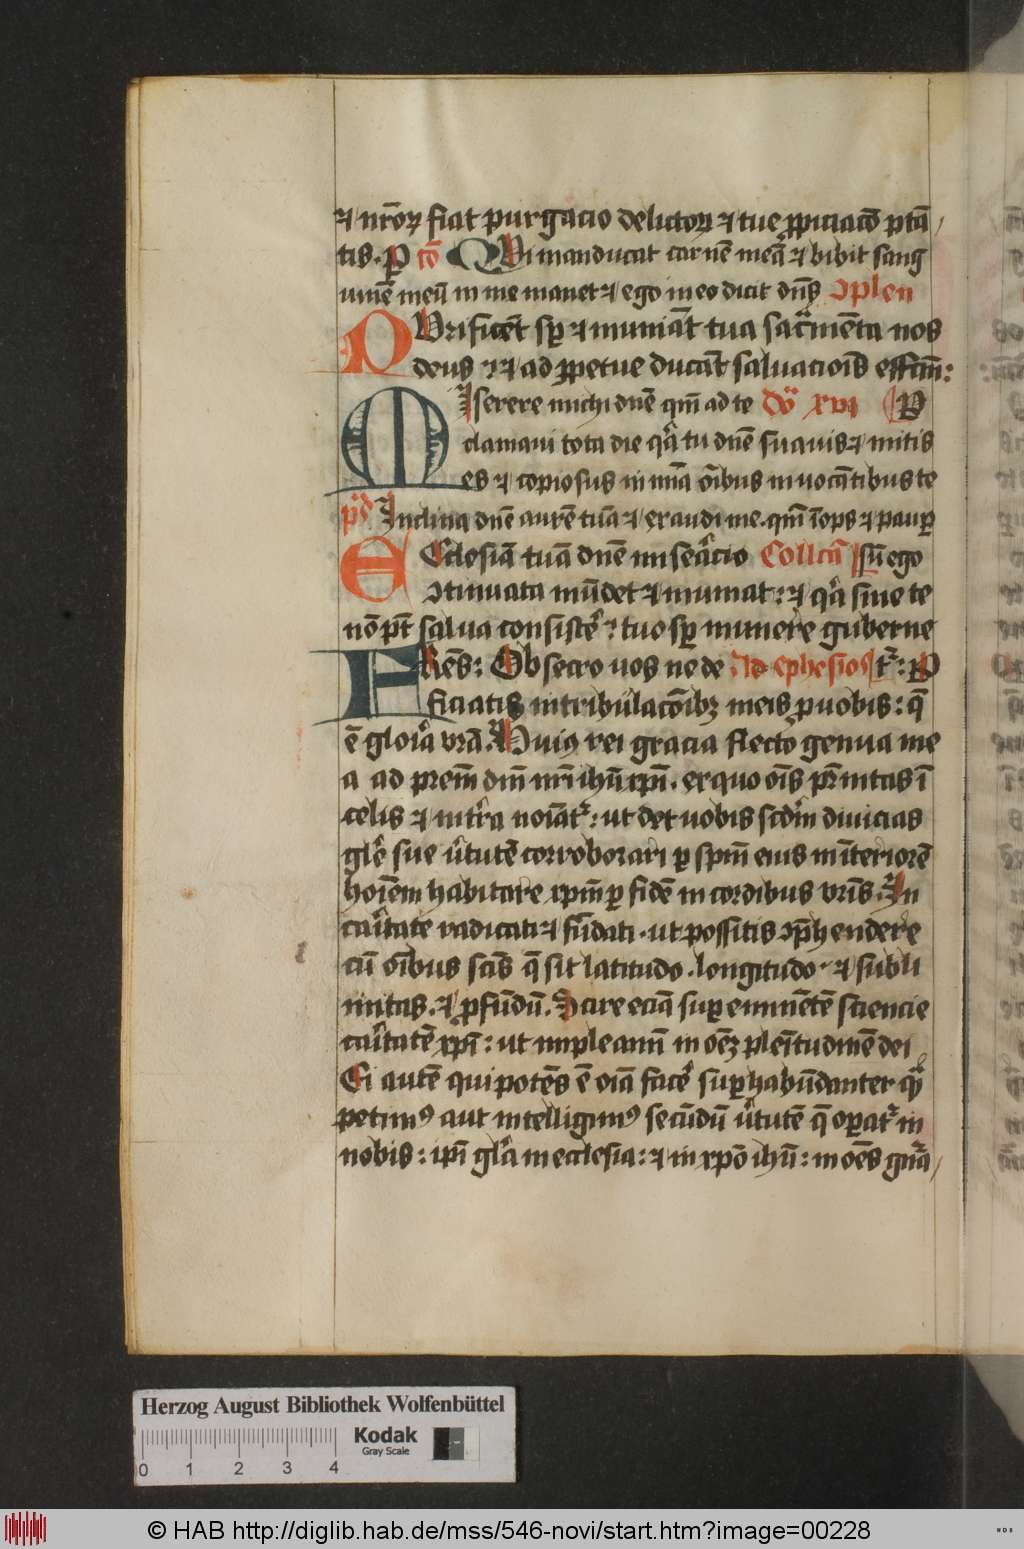 ⁊ nr̄oꝝ fiat purgacio delictoꝝ ⁊ tue ꝓpiciacō ptā
tis. P cō QVi manducat carnē meā ⁊ bibit sang
uinē meū in me manet ⁊ ego in eo dicit dn̄s ꝯplen
PVrificēt sꝑ ⁊ muniāt tua sacͣmēta nos
deus ⁊ ⁊ ad ꝑpetue ducāt saluacioīs effcm̄:
MIserere michi dn̄e qm̄ ad te Dō xvi P
clamaui tota die qͣ tu dn̄e suauis ⁊ mitis
es ⁊ copiosus in mīa oībus inuocātibus te
pͫd Inclina dn̄e aurē tuā ⁊ exaudi me. qm̄ īops ⁊ pauꝑ
EEcclesiā tuā dn̄e miseͣcio Collcā sū ego
ꝯtinuata mūdet ⁊ muniat: ⁊ qͣ sine te
nō pt̄ salua consistēˀ: tuo sꝑ munere guberne
FRēs: Obsecro uos ne de Ad ephesios tͬ: P
ficiatis in tribulacōibꝫ meis ꝓ uobis: q̄
ē gloͥa vrā. Huiꝰ rei gracia flecto genua me
a ad prem̄ dn̄i nr̄i ihū xpī. ex quo oīs pr̄nitas ī
celis ⁊ in tr̄a noīatͬ: ut det uobis scdm̄ diuicias
glē sue v̄tutē corroborari ꝑ spm̄ eius in īteriorē
hoīem habitare xpm̄ ꝑ fidē in cordibus vr̄is. In
caͥtate radicati ⁊ fūdati. ut possitis ꝯp̄hendere
cū oībus scīs q̄ sit latitudo. longitudo. ⁊ subli
mitas. ⁊ ꝓfūdū. Scire eciā suꝑeminētē sciencie
caͥtatē xpī: ut impleamī in oēꝫ pleītudinē dei
Ei autē qui potēs ē oīa facē suꝑhabūdanter qͣ
petimꝰ aut intelligimꝰ secūdū v̄tutē q̄ oꝑatͬ in
nobis: ipī glͣa in ecclesia: ⁊ in xpō ihū: in oēs gn̄a
Herzog August Bibliothek Wolfenbüttel
Kodak
Gray Scale
0 1 2 3 4
© HAB http://diglib.hab.de/mss/546-novi/start.htm?image=00228